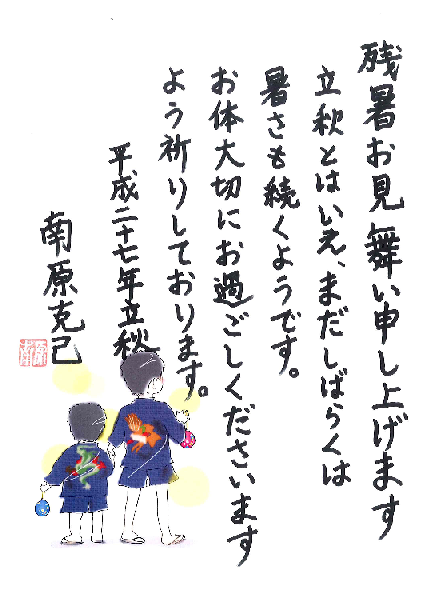 残暑お見舞い申し上げます
立秋とはいえ、まだしばらくは
暑さも続くようです。
お体大切にお過ごしくださいます
よう祈りしております。
平成二十七年立秋
南原克己